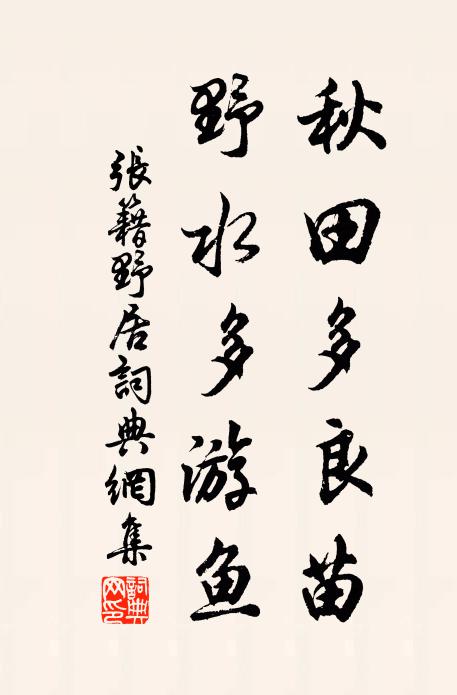 秋田多良苗
野水多游鱼
張籍野居詞典網集
詞典网印